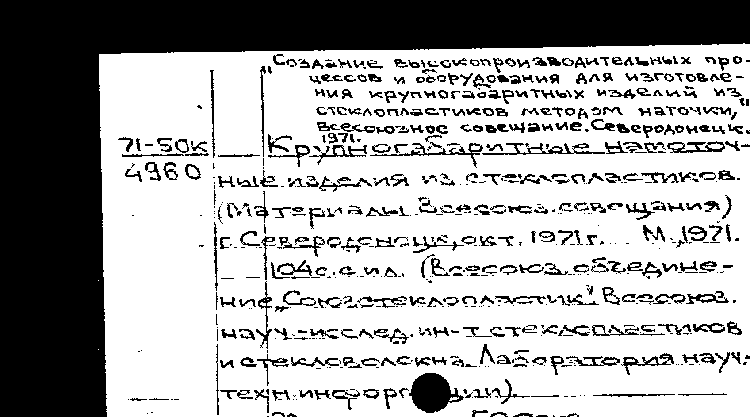 „Создание высокопроизводительных про-
цессов и оборудования для изготовле-
ния крупногабаритных изделий из
стеклопластиков методом наточки,"
Всесоюзное совещание. Северодонецк.
1971.
71-50к Крупногабаритные намоточ-
4960 ные изделия из стеклопластиков.
(Материалы Всесоюз. совещания)
г. Северодонецк, окт. 1971 г. М., 1971.
104с. с ил. (Всесоюз. объедине-
ние „Союзстеклопластик". Всесоюз.
науч.-исслед. ин-т стеклопластиков
и стекловолокна. Лаборатория науч.-
техн.